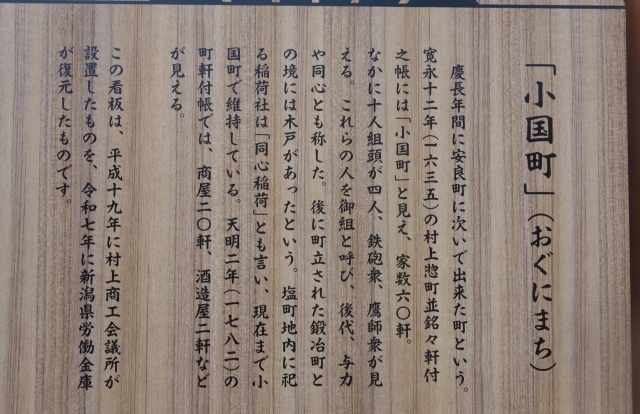 「小国町」(おぐにまち)
慶長年間に安良町に次いで出来た町という。
寛永十二年(一六三五)の村上惣町並銘々軒付
之帳には「小国町」と見え、家数六〇軒。
なかに十人組頭が四人、鉄砲衆、鷹師衆が見
える。これらの人を御組と呼び、後代、与力
や同心とも称した。後に町立された鍛冶町と
の境には木戸があったという。塩町地内に祀
る稲荷社は「同心稲荷」とも言い、現在まで小
国町で維持している。天明二年(一七八二)の
町軒付帳では、商屋二〇軒、酒造屋二軒など
が見える。
この看板は、平成十九年に村上商工会議所が
設置したものを、令和七年に新潟県労働金庫
が復元したものです。